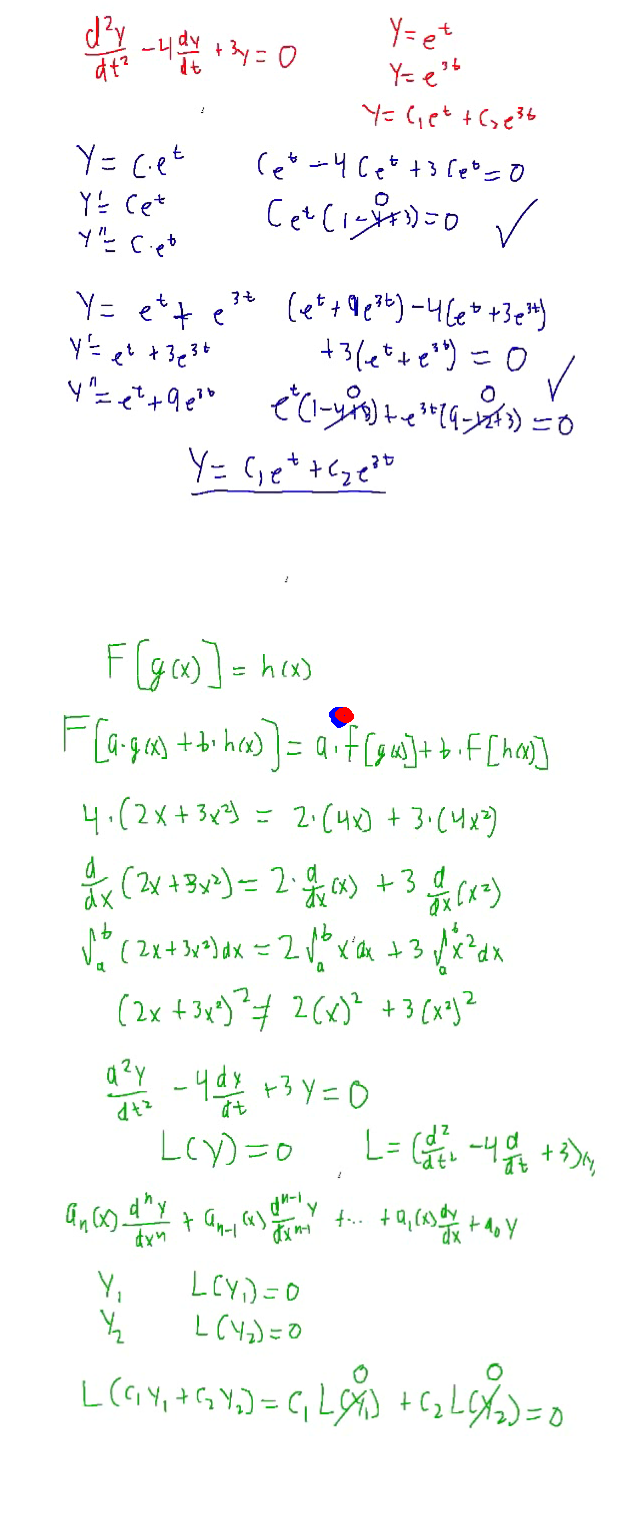 d²y/dt² - 4 dy/dt + 3y = 0
y = e^t
y = e^3t
y = c₁e^t + c₂e^3t
y = c·e^t
y' = ce^t
y'' = c·e^t
ce^t - 4ce^t + 3ce^t = 0
ce^t(1-4+3) = 0 ✓
0
y = e^t + e^3t
y' = e^t + 3e^3t
y'' = e^t + 9e^3t
(e^t + 9e^3t) - 4(e^t + 3e^3t)
+3(e^t + e^3t) = 0 ✓
0 0
e^t(1-4+3) + e^3t(9-12+3) = 0
y = c₁e^t + c₂e^3t
F[g(x)] = h(x)
F[a·g(x) + b·h(x)] = a·f[g(x)] + b·F[h(x)]
4·(2x + 3x²) = 2·(4x) + 3·(4x²)
d/dx (2x + 3x²) = 2·d/dx(x) + 3 d/dx(x²)
∫_a^b (2x + 3x²)dx = 2∫_a^b x dx + 3∫_a^b x² dx
(2x + 3x²)² ≠ 2(x)² + 3(x²)²
d²y/dt² - 4 dy/dt + 3y = 0
L(y) = 0 L = (d²/dt² - 4 d/dt + 3)y
aₙ(x) dⁿy/dxⁿ + aₙ₋₁(x) dⁿ⁻¹y/dxⁿ⁻¹ + ... + a₁(x) dy/dx + a₀y
y₁ L(y₁) = 0
y₂ L(y₂) = 0
0 0
L(c₁y₁ + c₂y₂) = c₁L(y₁) + c₂L(y₂) = 0